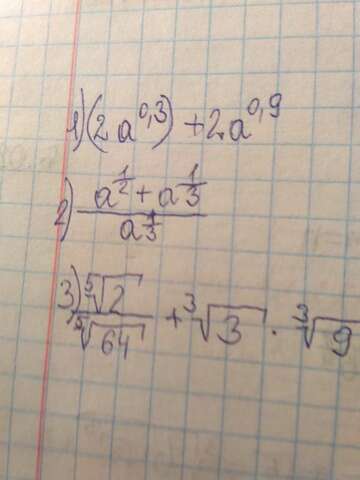 1) (2a^0,3) + 2a^0,9
2) (a^(1/2) + a^(1/3)) / a^(1/3)
3) ⁵√2 / ⁵√64 + ³√3 · ³√9